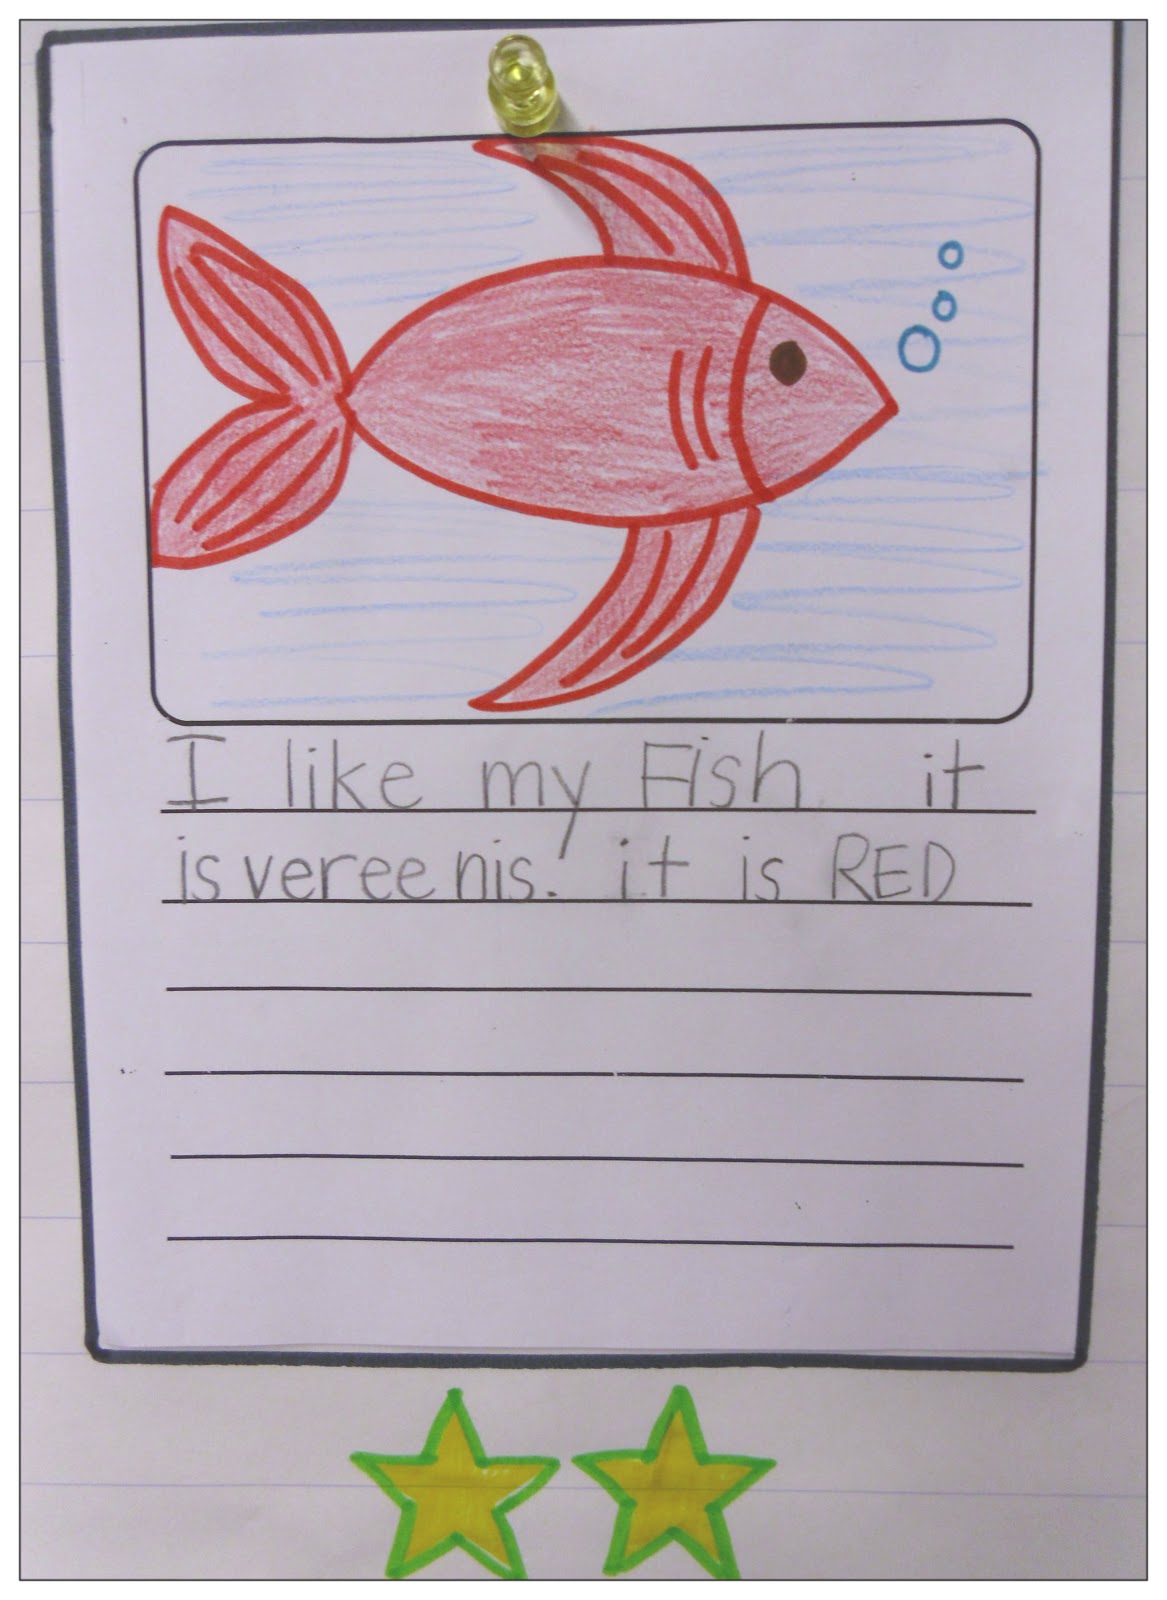 I like my Fish. it
is veree nis. it is RED